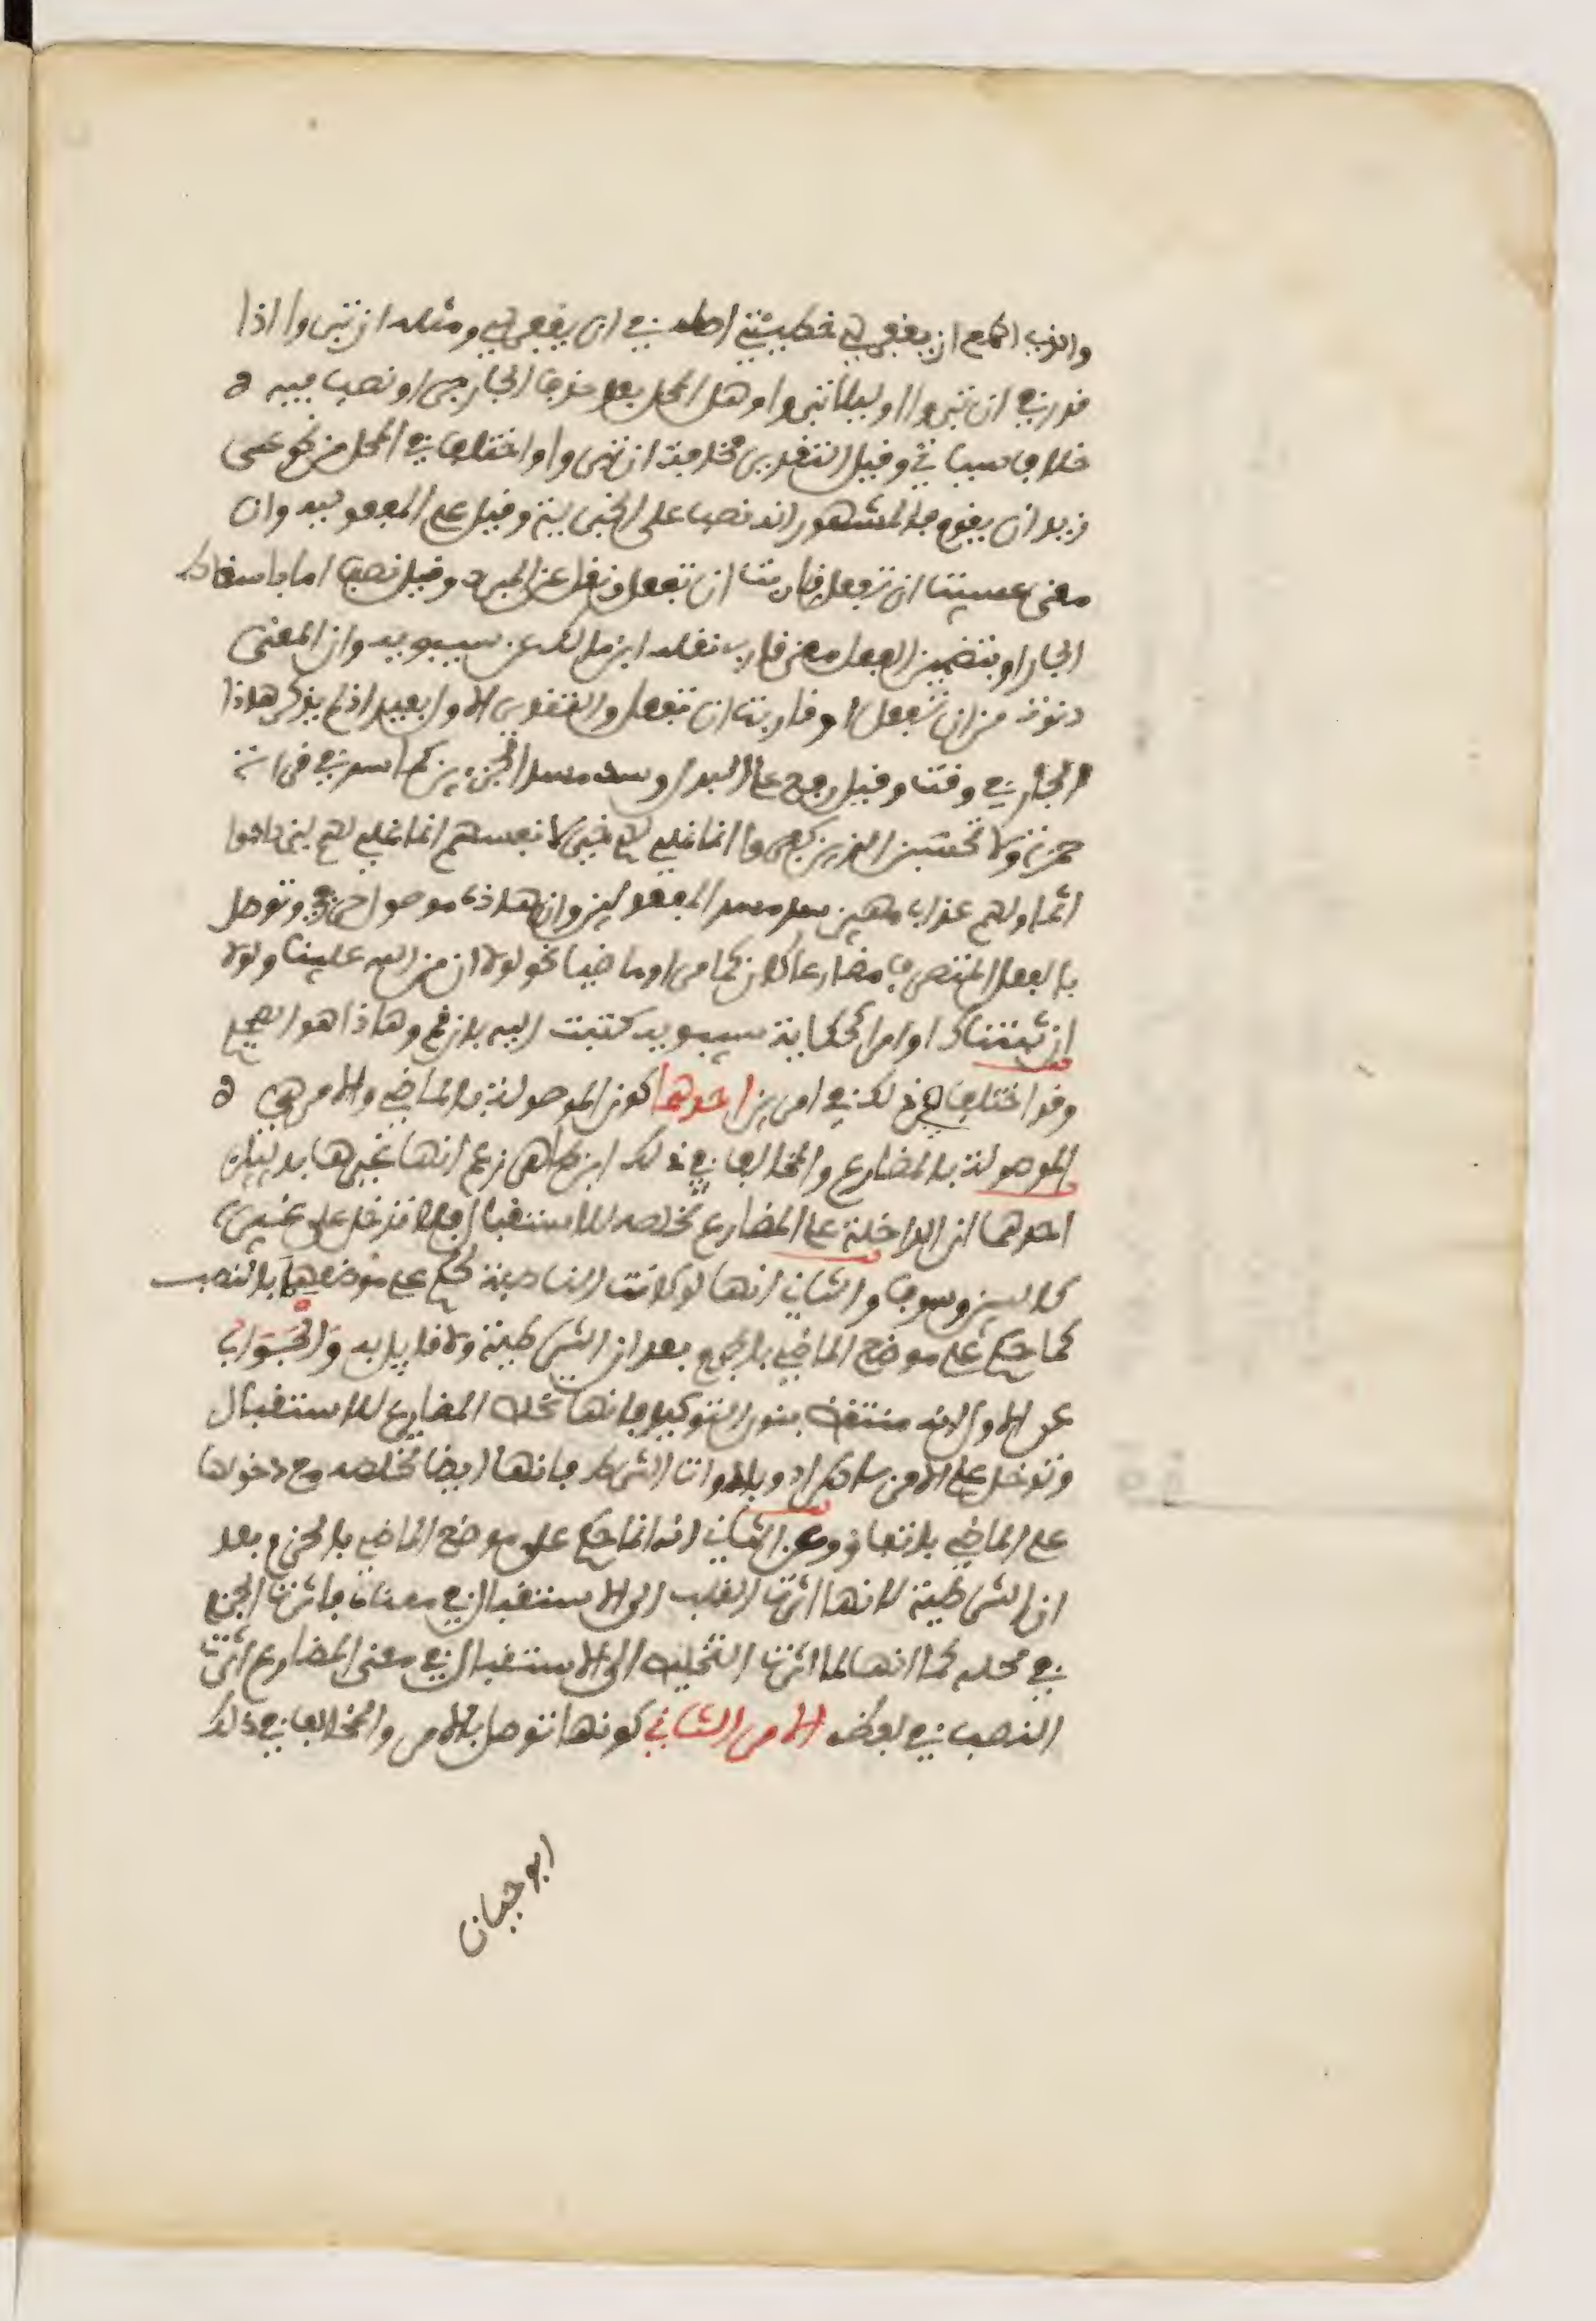 والذي اطمع ان يغفر لي خطيئتي اصله في ان يغفر لي ومثله ان تبروا اذا
قدر في ان تبروا او ليلا تبروا وهل المحل بعد حذف الجار جر او نصب فيه
خلاف سياتي وقيل التقدير مخافة ان تبروا واختلف في المحل من نحو عسى
زيد ان يقوم فالمشهور انه نصب على الخبرية وقيل على المفعولية وان
معنى عسيت ان تفعل قاربت ان تفعل ونقل عن المبرد وقيل نصب اما باسقاط
الجار او بتضمين الفعل معنى قارب نقله ابن مالك عن سيبويه وان المعنى
دنوت من ان تفعل او قاربت ان تفعل والتقدير الاول بعيد اذ لم يذكر هاذا
الجار في وقت وقيل رفع على البدل وسد مسد الجزءين كما سد في قراءة
حمزة ولا تحسبن الذين كفروا انما نملي لهم خير لانفسهم انما نملي لهم ليزدادوا
اثما ولهم عذاب مهين سد مسد المفعولين وان هاذه موصول حرفي وتوصل
بالفعل المتصرف مضارعا كان كما مر او ماضيا نحو لولا ان من الله علينا ولولا
ان ثبتناك او امرا كحكاية سيبويه كتبت اليه بان قم وهاذا هو الصحيح
وقد اختلف في ذلك في امرين احدهما كون الموصولة بالماضي والامر هي
الموصولة بالمضارع والمخالف في ذلك ابن طاهر زعم انها غيرها بدليلين
احدهما ان الداخلة على المضارع تخلصه للاستقبال فلا تدخل على غيره
كالسين وسوف والثاني انها لو كانت الناصبة لحكم على موضعها بالنصب
كما حكم على موضع الماضي بالجزم بعد ان الشرطية ولا قايل به والجواب
عن الاول انه منتقض بنون التوكيد فانها تخلص المضارع للاستقبال
وتدخل على الامر باطراد وبادوات الشرط فانها ايضا تخلصه مع دخولها
على الماضي باتفاق وعن الثاني انه انما حكم على موضع الماضي بالجزم بعد
ان الشرطية لانها اثرت القلب الى الاستقبال في معناه فاثرت الجزم
في محله كما انها لما اثرت التخليص الى الاستقبال في معنى المضارع اثرت
النصب في لفظه الامر الثاني كونها توصل بالامر والمخالف في ذلك
ابو حيان